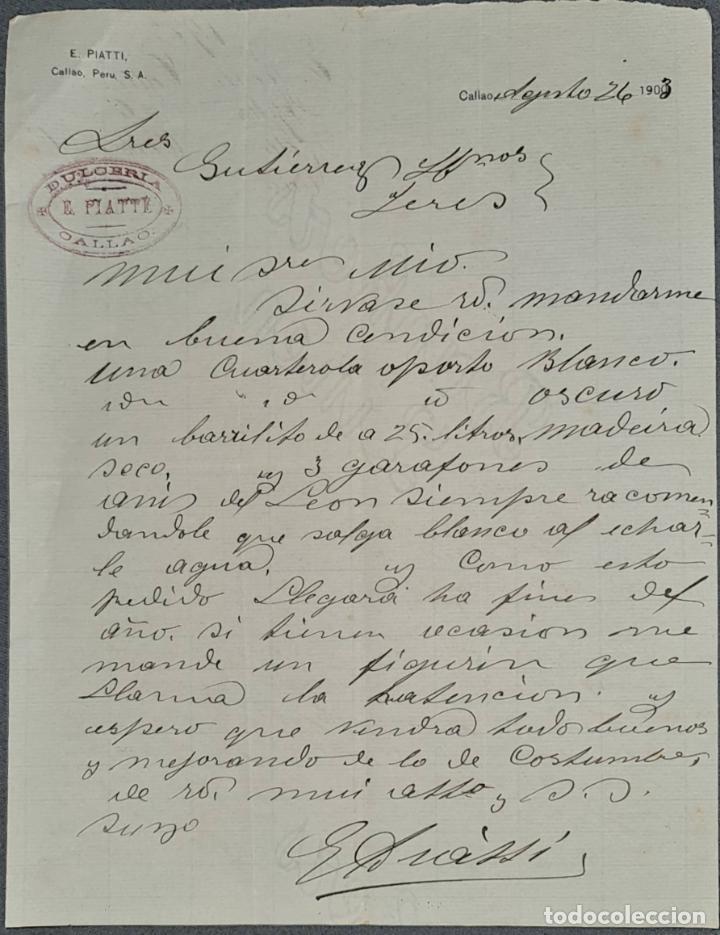 E. PIATTI,
Callao, Peru, S. A.
Callao, Agosto 26 1903
Sres
Gutiérrez Hnos
Jeres
DULCERIA
E. PIATTI
CALLAO.
Mui Sres Mio.
Sirvase Vd. mandarme
en buena condicion.
una Cuarterola oporto Blanco.
idn id id oscuro
un barrilito de a 25. litros, madeira
seco, y 3 garafones de
anis del Leon siempre racomen-
dandole que salga blanco al echar-
le agua. y como esto
pedido Llegará ha fines del
año. si tienen ocasion me
mande un figurin que
Llama la hatencion. y
espero que vendra todo buenos
y mejorando de lo de Costumbe,
de Vd. mui atto y S. S.
suyo
E Piatti
todocoleccion.net